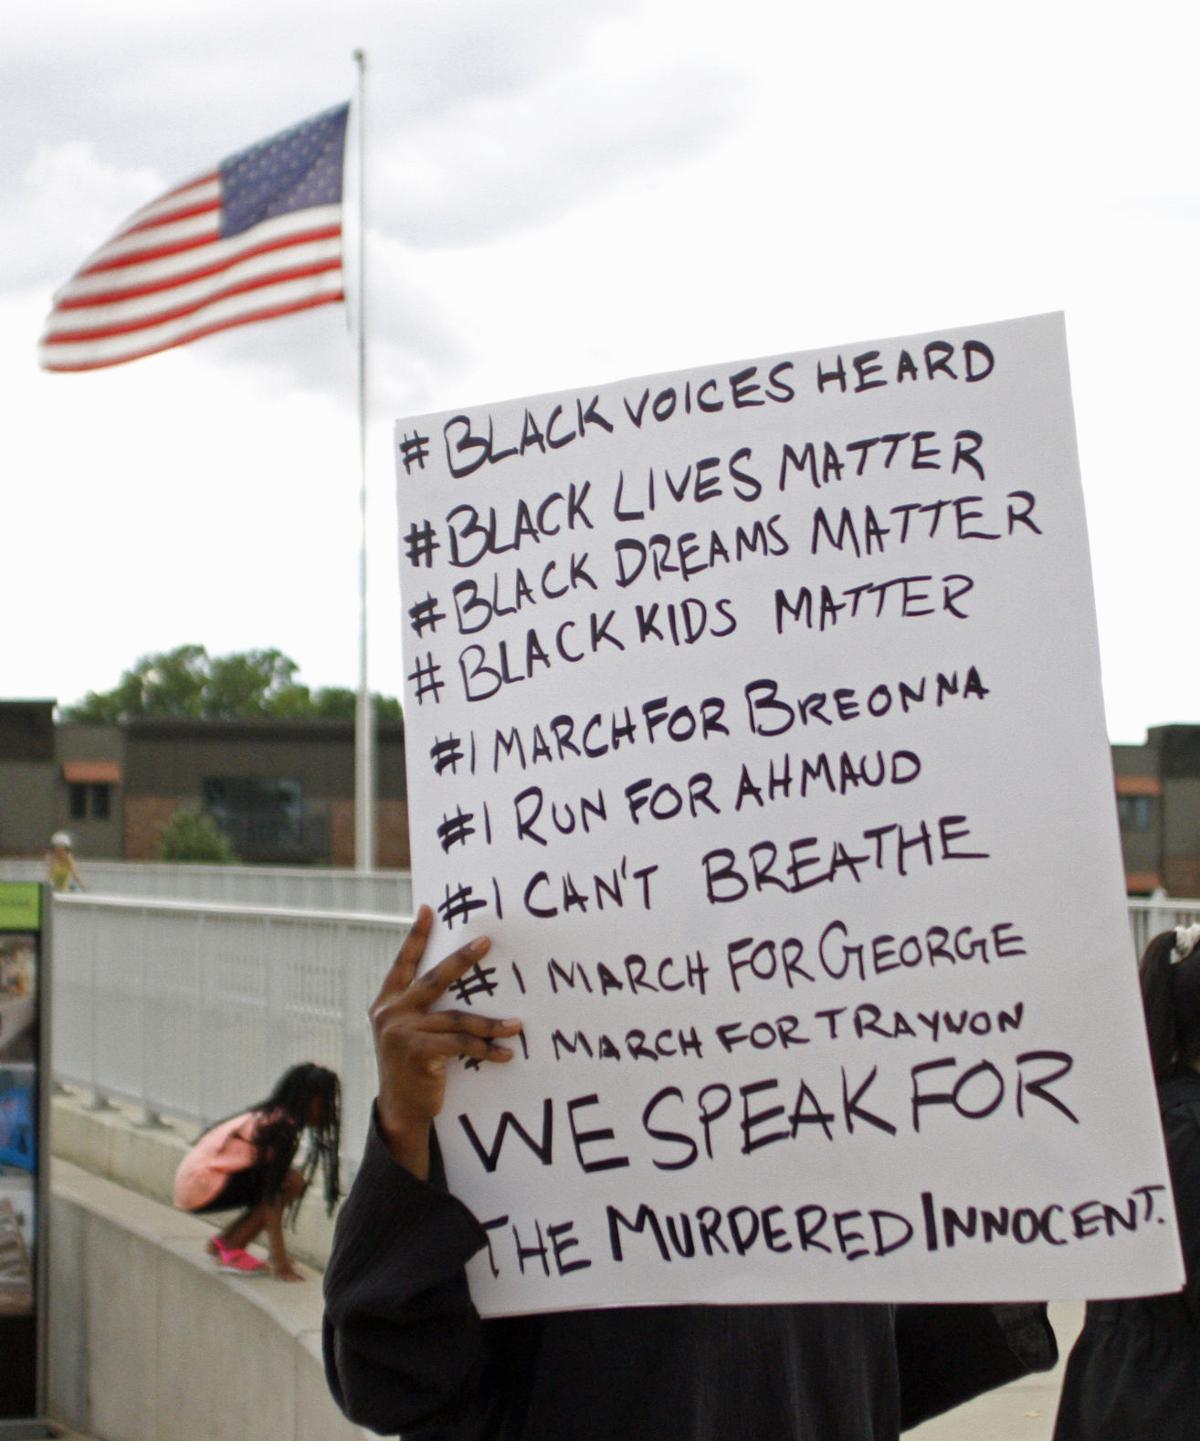 # BLACK VOICES HEARD
# BLACK LIVES MATTER
# BLACK DREAMS MATTER
# BLACK KIDS MATTER
# I MARCH FOR BREONNA
# I RUN FOR AHMAUD
# I CAN'T BREATHE
# I MARCH FOR GEORGE
# I MARCH FOR TRAYVON
WE SPEAK FOR
THE MURDERED INNOCENT.